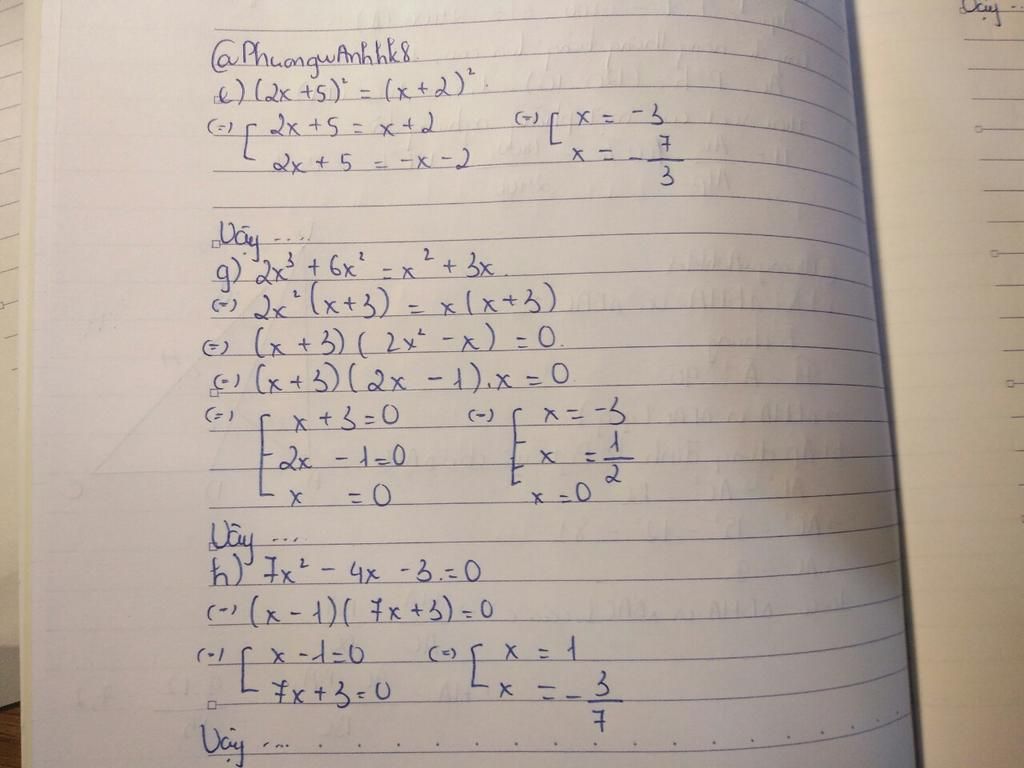 @PhuongwAnhhk8
e) (2x + 5)² = (x + 2)².
(=) [ 2x + 5 = x + 2 (=) [ x = -3
2x + 5 = -x - 2 x = -7/3
Vậy ....
g) 2x³ + 6x² = x² + 3x
(=) 2x² (x + 3) = x (x + 3)
(=) (x + 3) ( 2x² - x ) = 0.
(=) (x + 3) ( 2x - 1) . x = 0
(=) [ x + 3 = 0 (=) [ x = -3
2x - 1 = 0 x = 1/2
x = 0 x = 0
Vậy ....
h) 7x² - 4x - 3 = 0
(=) (x - 1) ( 7x + 3) = 0
(=) [ x - 1 = 0 (=) [ x = 1
7x + 3 = 0 x = -3/7
Vậy ....
Vậy ...